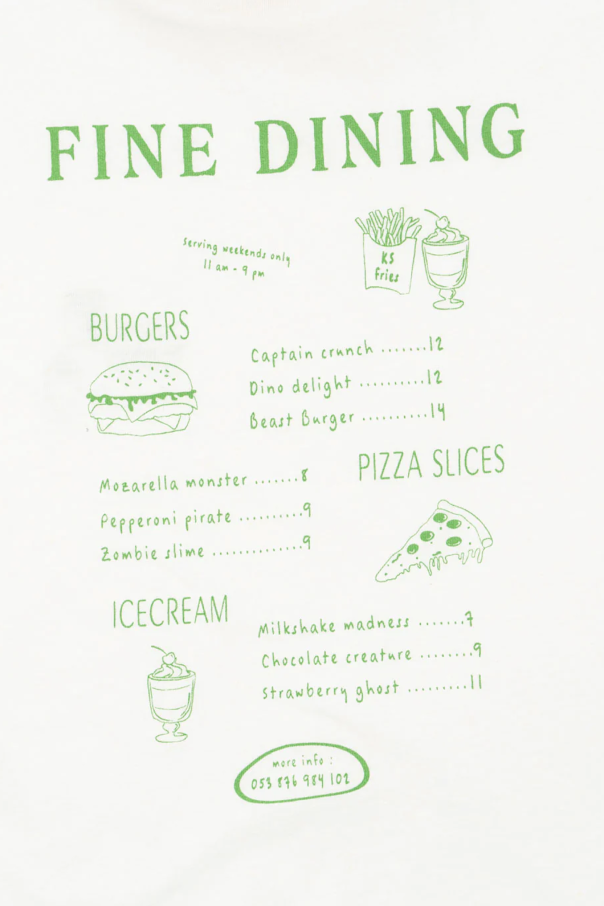 FINE DINING
serving weekends only
11 am - 9 pm
KS
fries
BURGERS
Captain crunch .......12
Dino delight ..........12
Beast Burger ..........14
PIZZA SLICES
Mozarella monster .......8
Pepperoni pirate ..........9
Zombie slime ..............9
ICECREAM
Milkshake madness .......7
Chocolate creature ........9
Strawberry ghost .........11
more info :
053 876 984 102